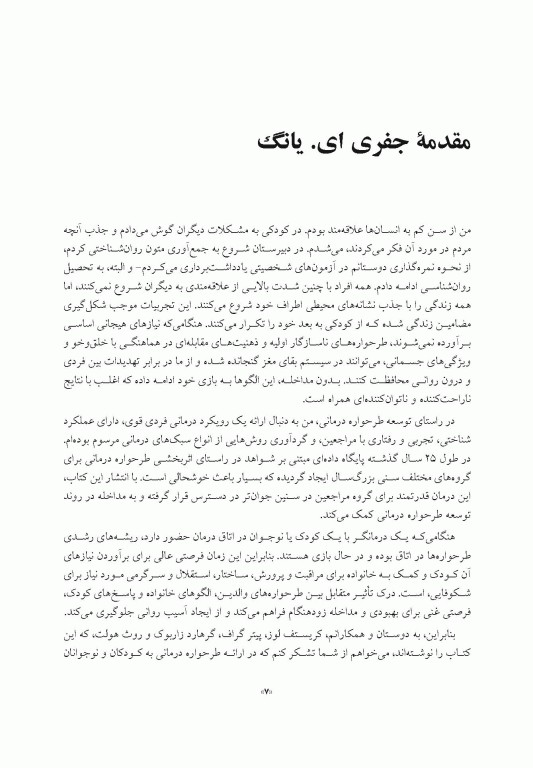 مقدمهٔ جفری ای. یانگ
من از سن کم به انسان‌ها علاقه‌مند بودم. در کودکی به مشکلات دیگران گوش می‌دادم و جذب آنچه
مردم در مورد آن فکر می‌کردند، می‌شدم. در دبیرستان شروع به جمع‌آوری متون روان‌شناختی کردم،
از نحوه نمره‌گذاری دوستانم در آزمون‌های شخصیتی یادداشت‌برداری می‌کردم- و البته، به تحصیل
روان‌شناسی ادامه دادم. همه افراد با چنین شدت بالایی از علاقه‌مندی به دیگران شروع نمی‌کنند، اما
همه زندگی را با جذب نشانه‌های محیطی اطراف خود شروع می‌کنند. این تجربیات موجب شکل‌گیری
مضامین زندگی شده که از کودکی به بعد خود را تکرار می‌کنند. هنگامی‌که نیازهای هیجانی اساسی
برآورده نمی‌شوند، طرحواره‌های ناسازگار اولیه و ذهنیت‌های مقابله‌ای در هماهنگی با خلق‌وخو و
ویژگی‌های جسمانی، می‌توانند در سیستم بقای مغز گنجانده شده و از ما در برابر تهدیدات بین فردی
و درون روانی محافظت کنند. بدون مداخله، این الگوها به بازی خود ادامه داده که اغلب با نتایج
ناراحت‌کننده و ناتوان‌کننده‌ای همراه است.
در راستای توسعه طرحواره درمانی، من به دنبال ارائه یک رویکرد درمانی فردی قوی، دارای عملکرد
شناختی، تجربی و رفتاری با مراجعین، و گردآوری روش‌هایی از انواع سبک‌های درمانی مرسوم بوده‌ام.
در طول ۲۵ سال گذشته پایگاه داده‌ای مبتنی بر شواهد در راستای اثربخشی طرحواره درمانی برای
گروه‌های مختلف سنی بزرگ‌سال ایجاد گردیده که بسیار باعث خوشحالی است. با انتشار این کتاب،
این درمان قدرتمند برای گروه مراجعین در سنین جوان‌تر در دسترس قرار گرفته و به مداخله در روند
توسعه طرحواره درمانی کمک می‌کند.
هنگامی‌که یک درمانگر با یک کودک یا نوجوان در اتاق درمان حضور دارد، ریشه‌های رشدی
طرحواره‌ها در اتاق بوده و در حال بازی هستند. بنابراین این زمان فرصتی عالی برای برآوردن نیازهای
آن کودک و کمک به خانواده برای مراقبت و پرورش، ساختار، استقلال و سرگرمی مورد نیاز برای
شکوفایی، است. درک تأثیر متقابل بین طرحواره‌های والدین، الگوهای خانواده و پاسخ‌های کودک،
فرصتی غنی برای بهبودی و مداخله زودهنگام فراهم می‌کند و از ایجاد آسیب روانی جلوگیری می‌کند.
بنابراین، به دوستان و همکارانم، کریستف لوز، پیتر گراف، گرهارد زاربوک و روث هولت، که این
کتاب را نوشته‌اند، می‌خواهم از شما تشکر کنم که در ارائه طرحواره درمانی به کودکان و نوجوانان
«۷»